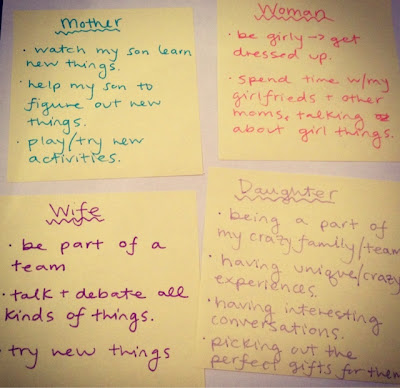 Mother
• watch my son learn
new things.
• help my son to
figure out new
things.
• play/try new
activities.
Woman
• be girly → get
dressed up.
• spend time w/my
girlfrieds + other
moms, talking
about girl things.
Wife
• be part of a
team
• talk + debate all
kinds of things.
• try new things
Daughter
• being a part of
my crazy family/team
• having unique/crazy
experiences.
• having interesting
conversations.
• picking out the
perfect gifts for them